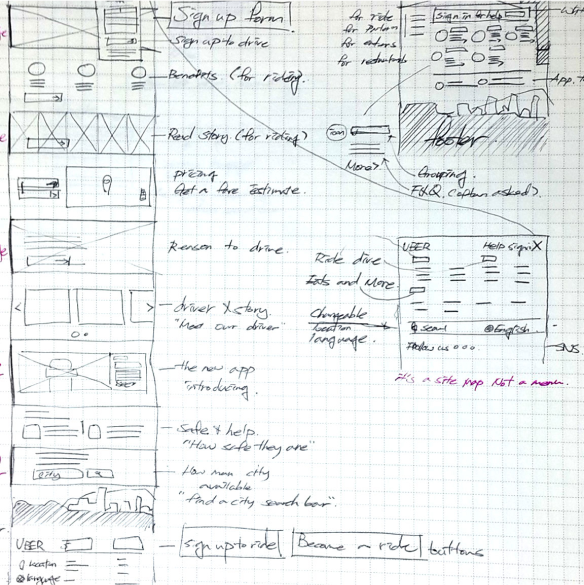 Sign up form
Sign up to drive
Benefits (for riding)
Read story (for riding)
pricing
Get a fare estimate.
Reason to drive.
driver & story.
"Meet our driver"
the new app
introducing.
safe & help.
"How safe they are"
city
How man city
available
"find a city search bar".
UBER
Location
language
sign up to ride
Become a ride
buttons
for ride
for
for
for
Sign in for help
App.
footer
icon
More>
Grouping.
F&Q. (often asked).
UBER
Help sign in X
Ride drive
Eats and More
Changeable
location
language.
seoul
English
Follow us
SNS
it's a site map Not a menu.